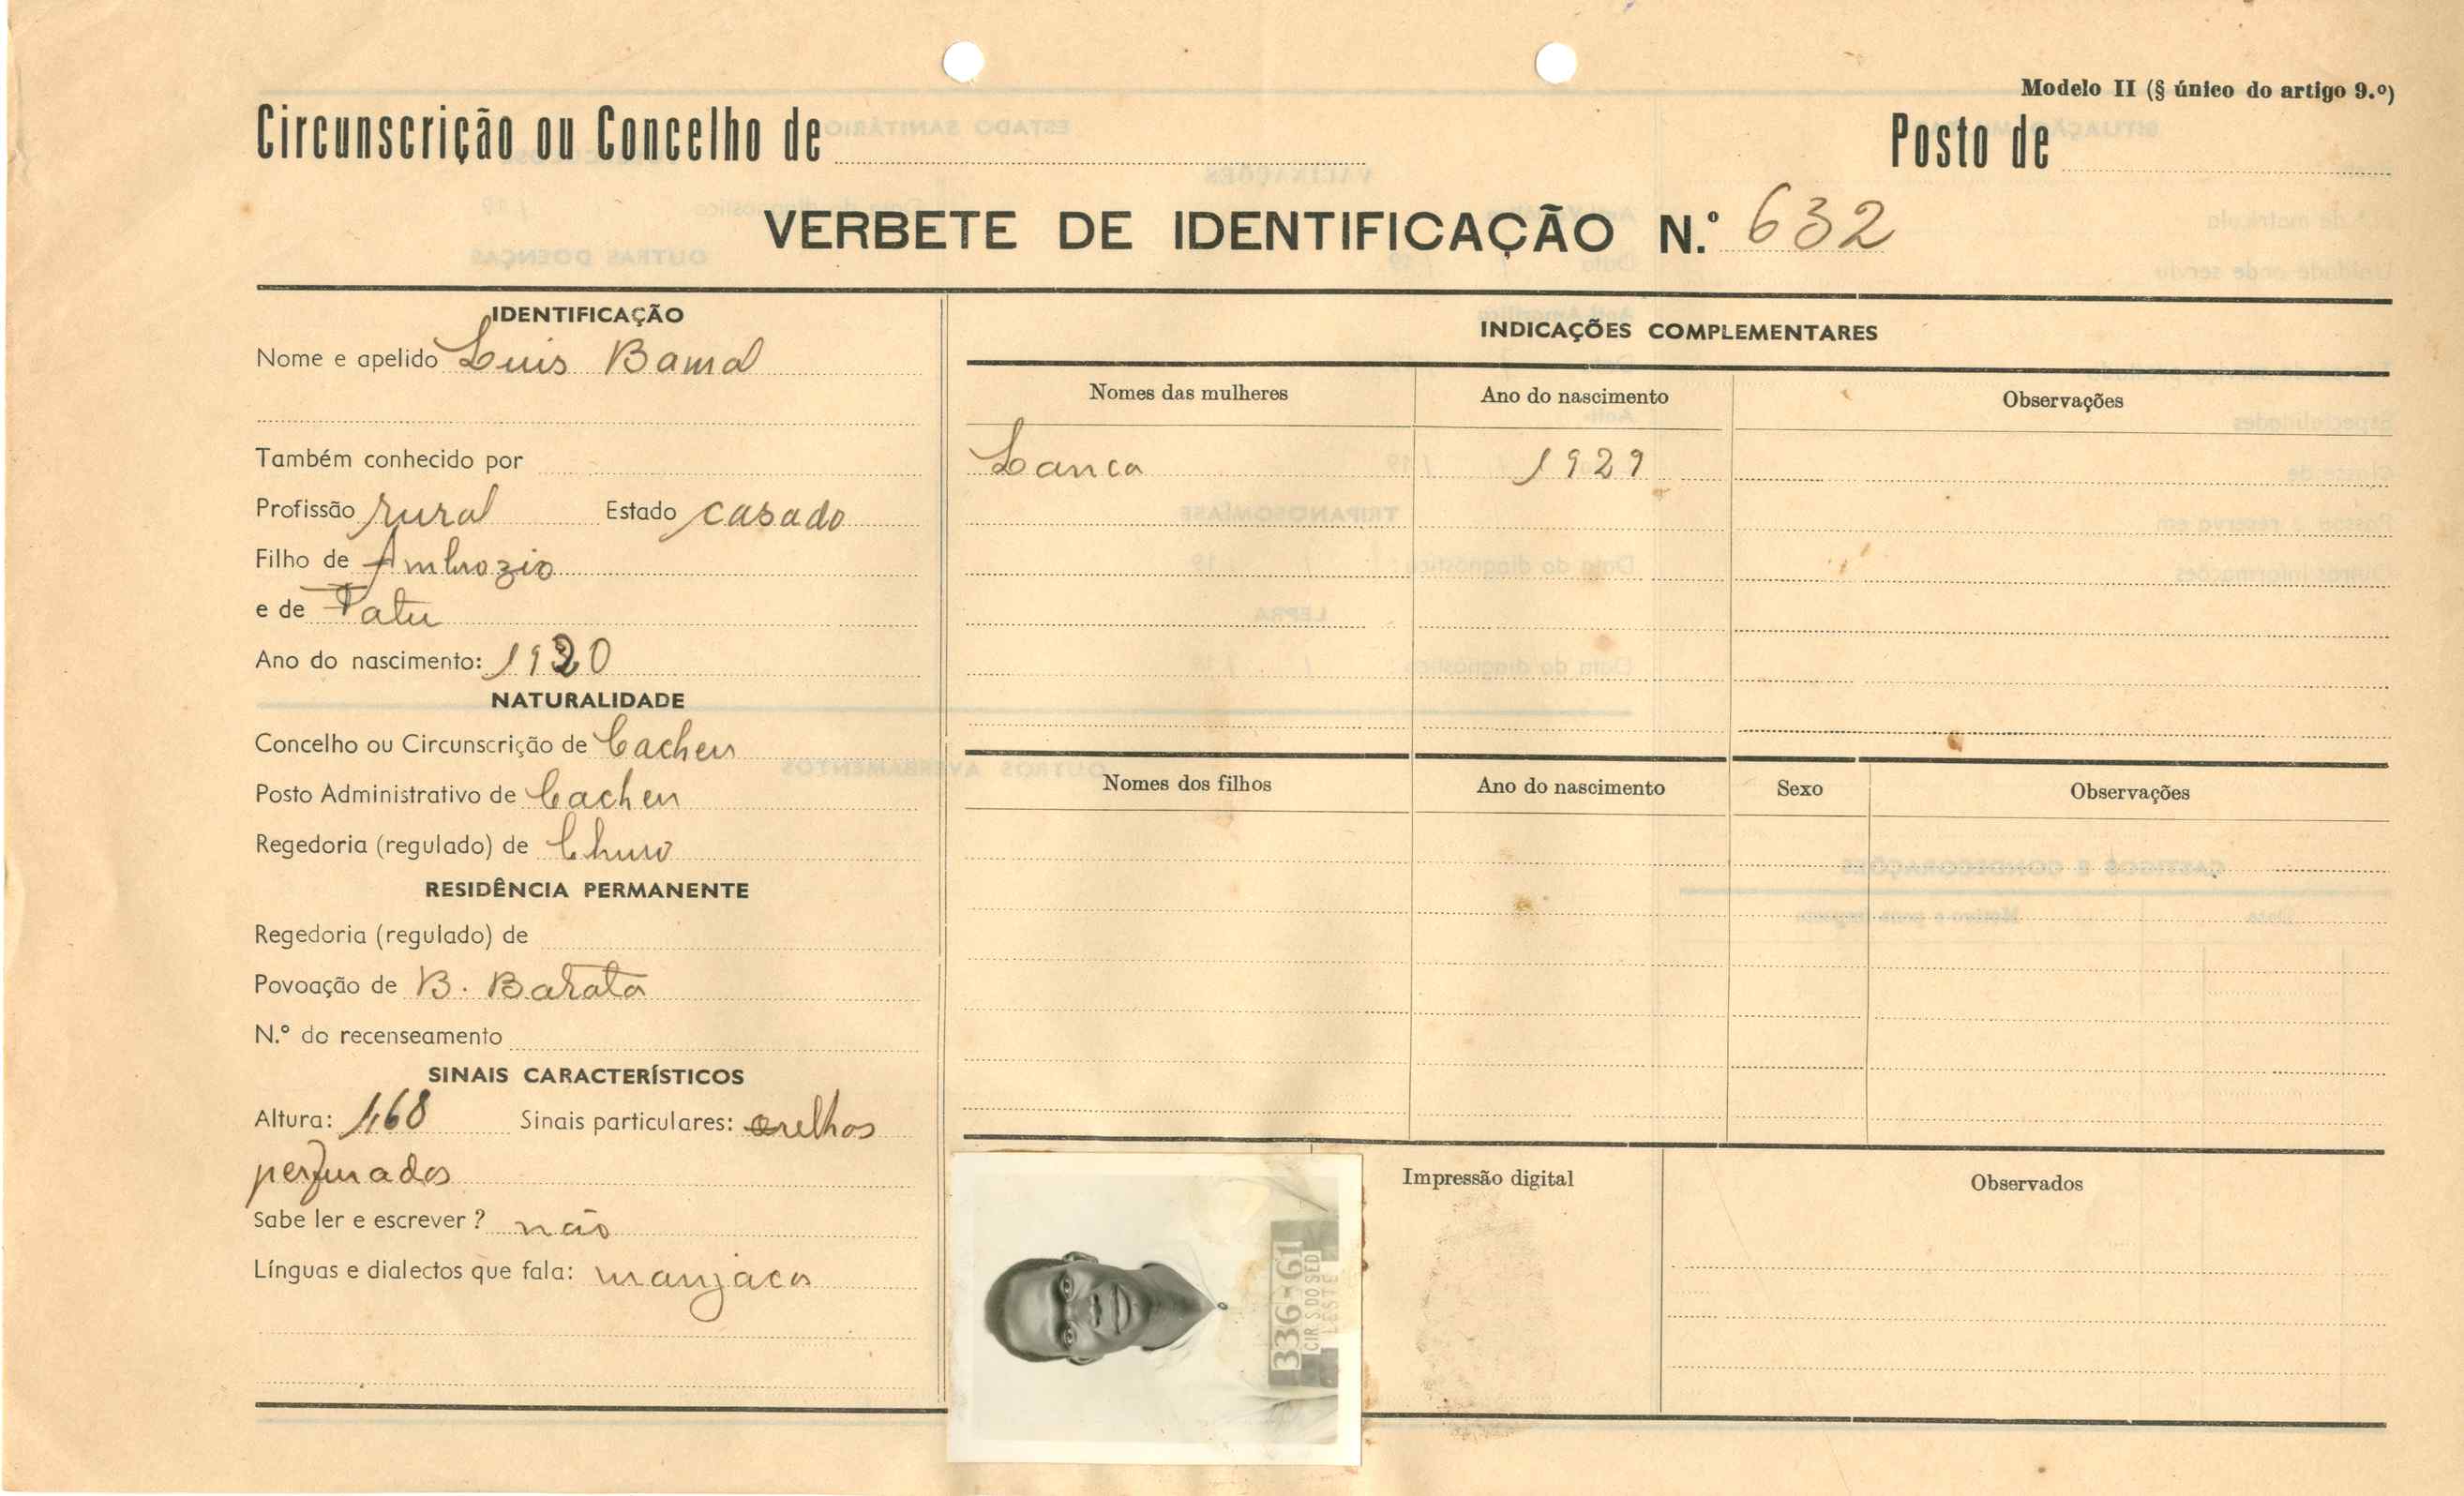 Modelo II (§ único do artigo 9.º)
Circunscrição ou Concelho de
Posto de
VERBETE DE IDENTIFICAÇÃO N.º 632
IDENTIFICAÇÃO
Nome e apelido Luis Bamal
Também conhecido por
Profissão rural Estado casado
Filho de Ambrozio
e de Fatu
Ano do nascimento: 1920
NATURALIDADE
Concelho ou Circunscrição de Cacheu
Posto Administrativo de Cacheu
Regedoria (regulado) de Churo
RESIDÊNCIA PERMANENTE
Regedoria (regulado) de
Povoação de B. Barata
N.º do recenseamento
SINAIS CARACTERÍSTICOS
Altura: 1,68 Sinais particulares: orelhas
perfuradas
Sabe ler e escrever? não
Línguas e dialectos que fala: manjaca
INDICAÇÕES COMPLEMENTARES
Nomes das mulheres Ano do nascimento Observações
Lanca 1929
Nomes dos filhos Ano do nascimento Sexo Observações
336-61
CIR S DO SED
LESTE
Impressão digital
Observados